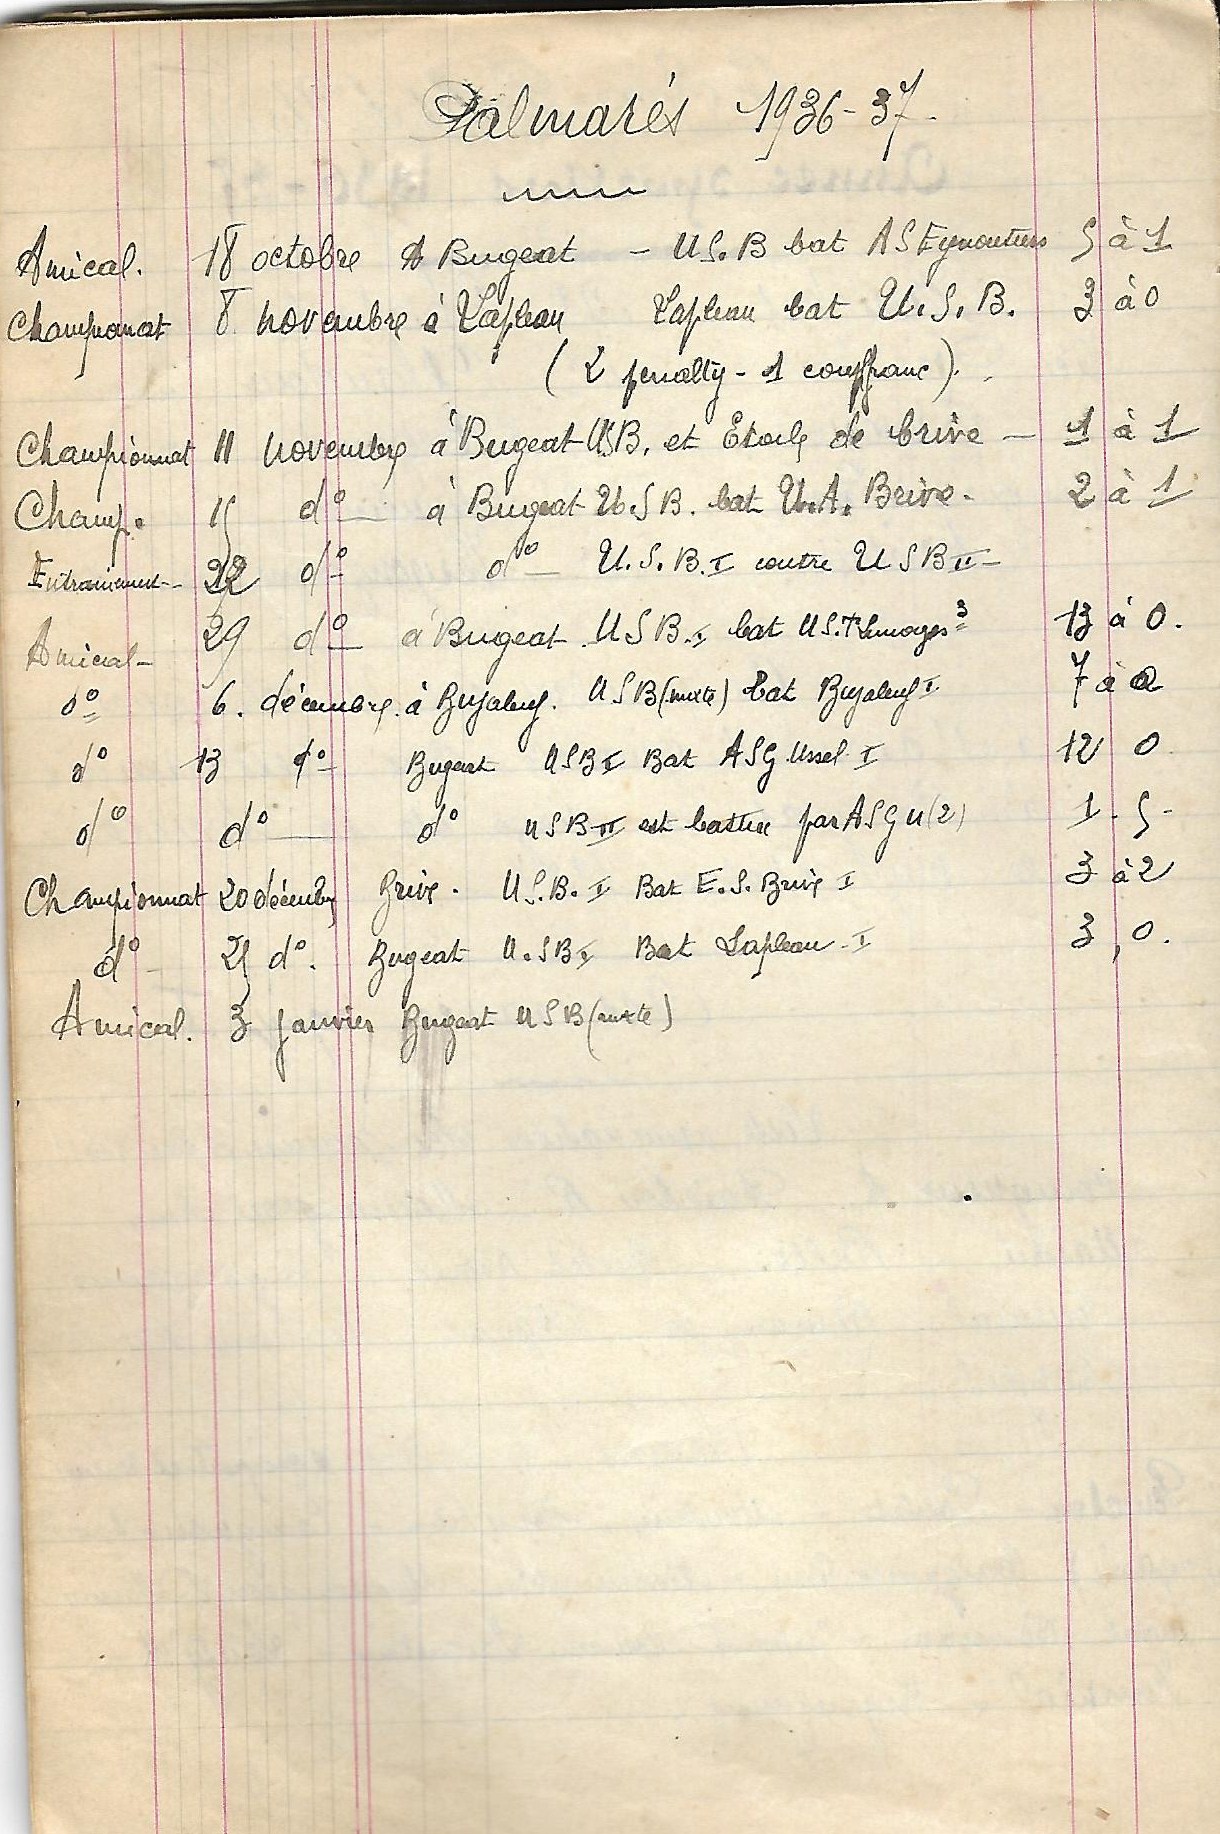 Palmarés 1936-37.
Amical. 18 octobre A Bugeat - U.S.B bat A S Eymoutiers 5 à 1
Championnat 8 novembre à Lapleau Lapleau bat U.S.B. 3 à 0
( 2 penalty - 1 coupfranc).
Championnat 11 novembre à Bugeat USB. et Etoile de brive - 1 à 1
Champ. 15 d° à Bugeat U.S.B. bat U.A. Brive - 2 à 1
Entrainement - 22 d° d° U.S.B. I contre U S B II -
Amical - 29 d° à Bugeat U S B. I bat U.S.T. Limoges 3 13 à 0.
d° 6. décembre. à Bujaleuf. U S B (mixte) bat Bujaleuf I 7 à
d° 13 d° Bugeat U S B I Bat A S G Ussel I 12 0
d° d° d° U S B II est battue par A S G U (2) 1 - 5 -
Championnat 20 décembre Brive. U.S.B. I Bat E.S. Brive I 3 à 2
d° 25 d°. Bugeat U.S B I Bat Lapleau - I 3, 0.
Amical. 3 janvier Bugeat U S B (mixte)